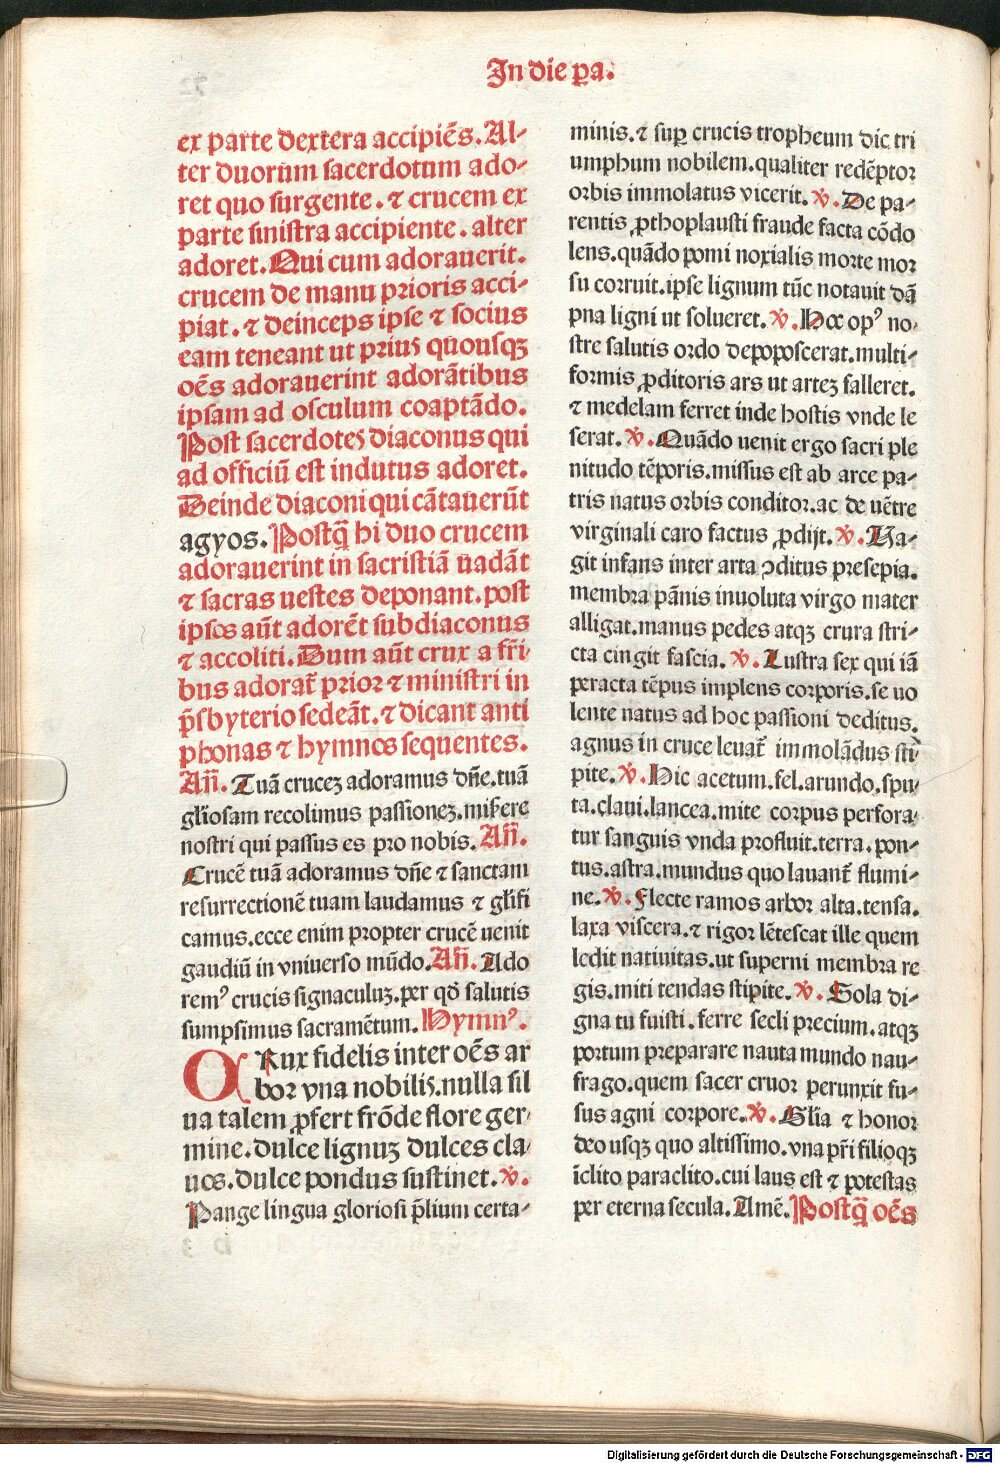 In die ꝑa.
ex parte dextera accipiẽs. Al-
ter duorum sacerdotum ado-
ret quo surgente. ⁊ crucem ex
parte sinistra accipiente. alter
adoret. Qui cum adorauerit.
crucem de manu prioris acci-
piat. ⁊ deinceps ipse ⁊ socius
eam teneant ut prius quousqꝫ
oẽs adorauerint adorãtibus
ipsam ad osculum coaptãdo.
Post sacerdotes diaconus qui
ad officiũ est indutus adoret.
Deinde diaconi qui cãtauerũt
agyos. Postq̃ hi duo crucem
adorauerint in sacristiã uadãt
⁊ sacras uestes deponant. post
ipsos aũt adorẽt subdiaconus
⁊ accoliti. Dum aũt crux a fr̃i-
bus adorat̃ prior ⁊ ministri in
p̃sbyterio sedeãt. ⁊ dicant anti
phonas ⁊ hymnos sequentes.
Añ. Tuã cruceꝫ adoramus dñe. tuã
gl̃iosam recolimus passioneꝫ. mis̃ere
nostri qui passus es pro nobis. Añ.
Crucẽ tuã adoramus dñe ⁊ sanctam
resurrectionẽ tuam laudamus ⁊ gl̃ifi
camus. ecce enim propter crucẽ uenit
gaudiũ in vniuerso mũdo. Añ. Ado
remꝰ crucis signaculuꝫ. per qđ salutis
sumpsimus sacramẽtum. Hymnꝰ.
CRux fidelis inter oẽs ar
bor vna nobilis. nulla sil
ua talem ꝓfert frõde flore ger-
mine. dulce lignuꝫ dulces cla-
uos. dulce pondus sustinet. ℣.
Pange lingua gloriosi p̃lium certa-
minis. ⁊ suꝑ crucis tropheum dic tri
umphum nobilem. qualiter redẽptor
orbis immolatus vicerit. ℣. De pa-
rentis ꝓthoplausti fraude facta cõdo
lens. quãdo pomi noxialis morte mor
su corruit. ipse lignum tũc notauit dã
pna ligni ut solueret. ℣. Hoc opꝰ no-
stre salutis ordo depoposcerat. multi-
formis ꝓditoris ars ut arteꝫ falleret.
⁊ medelam ferret inde hostis vnde le
serat. ℣. Quãdo uenit ergo sacri ple
nitudo tẽporis. missus est ab arce pa-
tris natus orbis conditor. ac de uẽtre
virginali caro factus ꝓdijt. ℣. Va-
git infans inter arta ꝯditus presepia.
membra pãnis inuoluta virgo mater
alligat. manus pedes atqꝫ crura stri-
cta cingit fascia. ℣. Lustra sex qui iã
peracta tẽpus implens corporis. se uo
lente natus ad hoc passioni deditus.
agnus in cruce leuat̃ immolãdus sti-
pite. ℣. Hic acetum. fel. arundo. spu-
ta. claui. lancea. mite corpus perfora-
tur sanguis vnda profluit. terra. pon-
tus. astra. mundus quo lauant̃ flumi-
ne. ℣. Flecte ramos arbor alta. tensa.
laxa viscera. ⁊ rigor lẽtescat ille quem
dedit natiuitas. ut superni membra re
gis. miti tendas stipite. ℣. Sola di-
gna tu fuisti. ferre secli precium. atqꝫ
portum preparare nauta mundo nau-
frago. quem sacer cruor perunxit fu-
sus agni corpore. ℣. Gl̃ia ⁊ honor
deo usqꝫ quo altissimo. vna pr̃i filioqꝫ
ĩclito paraclito. cui laus est ⁊ potestas
per eterna secula. Amẽ. Postq̃ oẽs
Digitalisierung gefördert durch die Deutsche Forschungsgemeinschaft - DFG